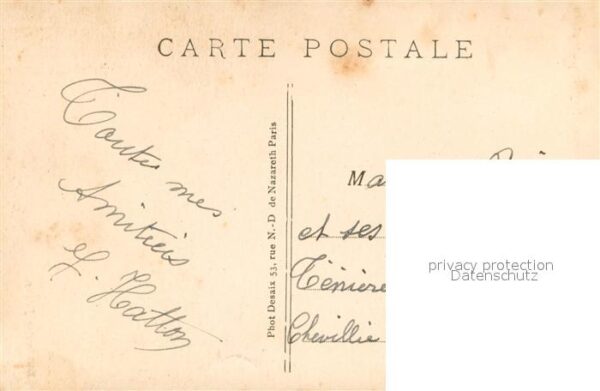 CARTE POSTALE
Toutes mes
Amitiés
G. Hatton
Phot Desaix 53, rue N.-D de Nazareth Paris
Ma
et ses
privacy protection
Datenschutz